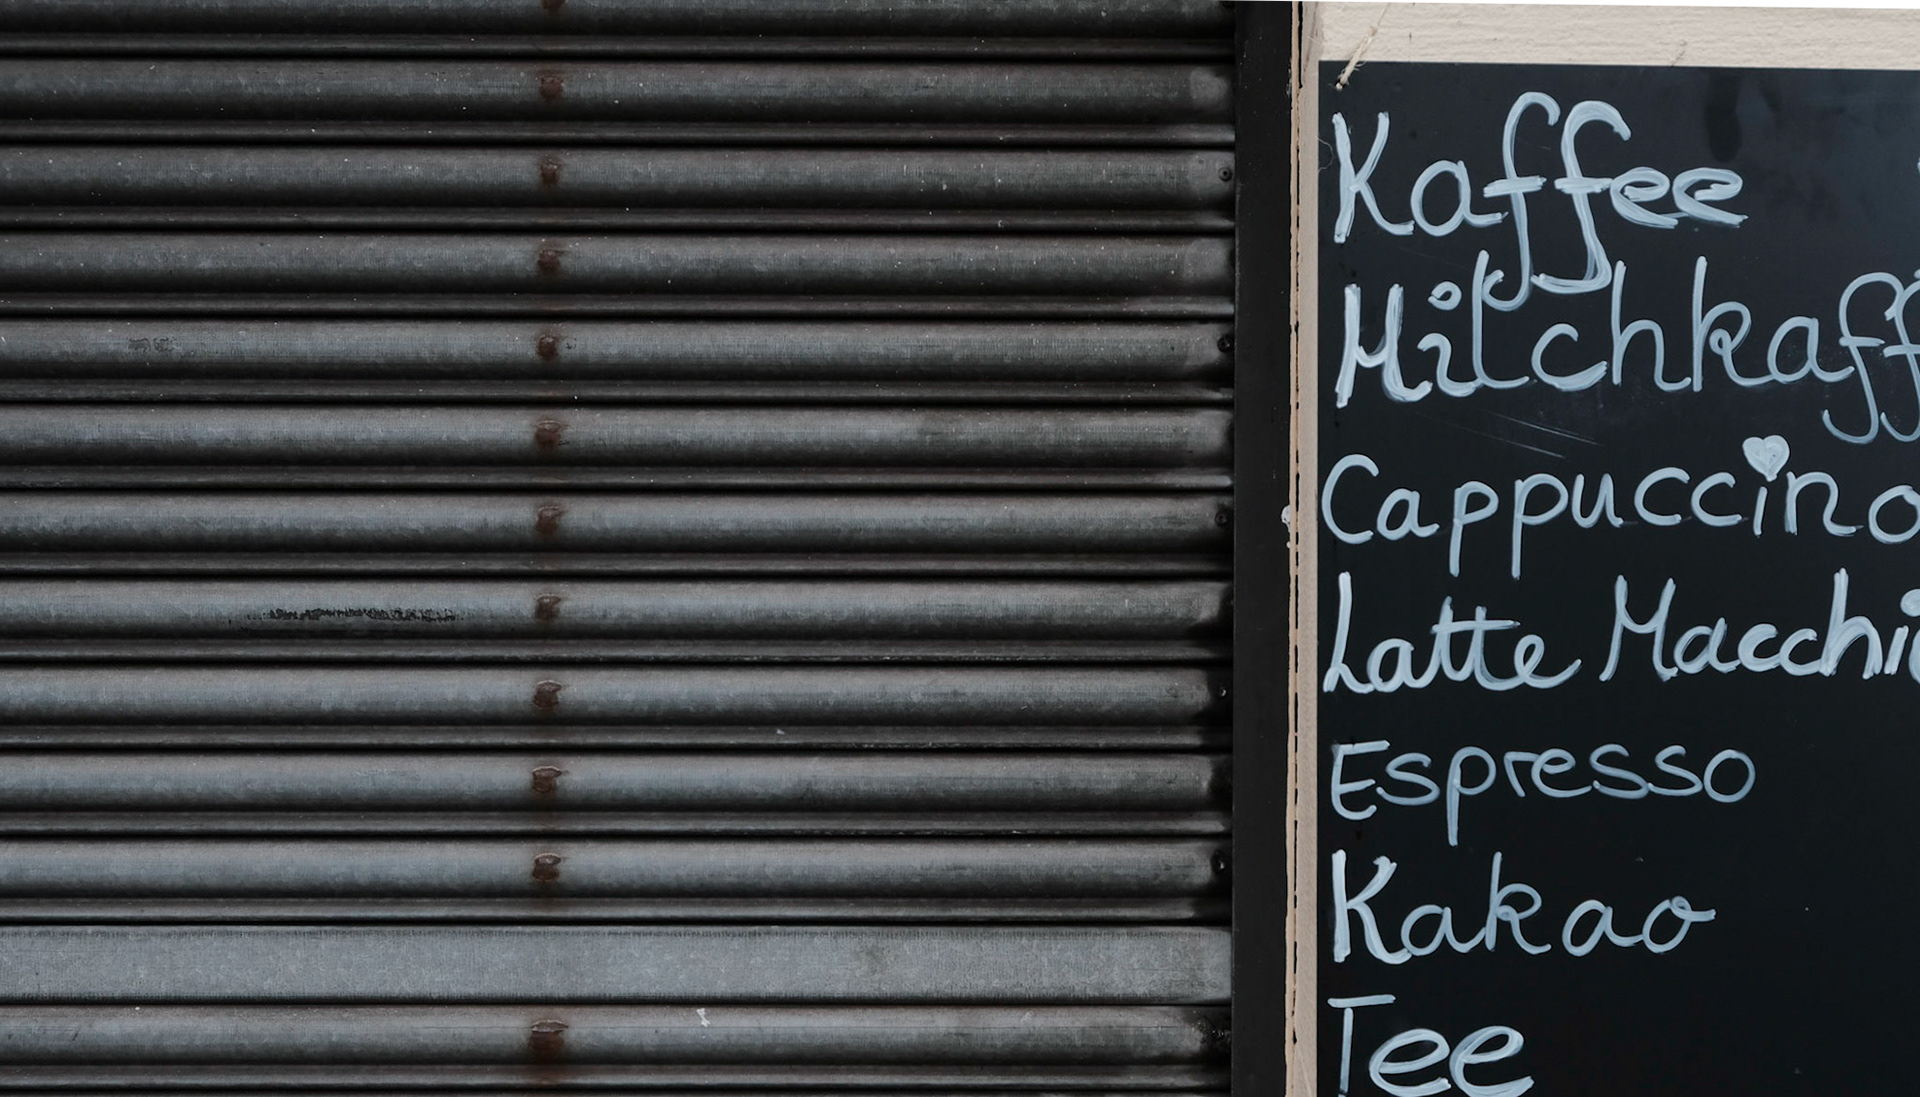 Kaffee
Milchkaff
Cappuccino
Latte Macchi
Espresso
Kakao
Tee